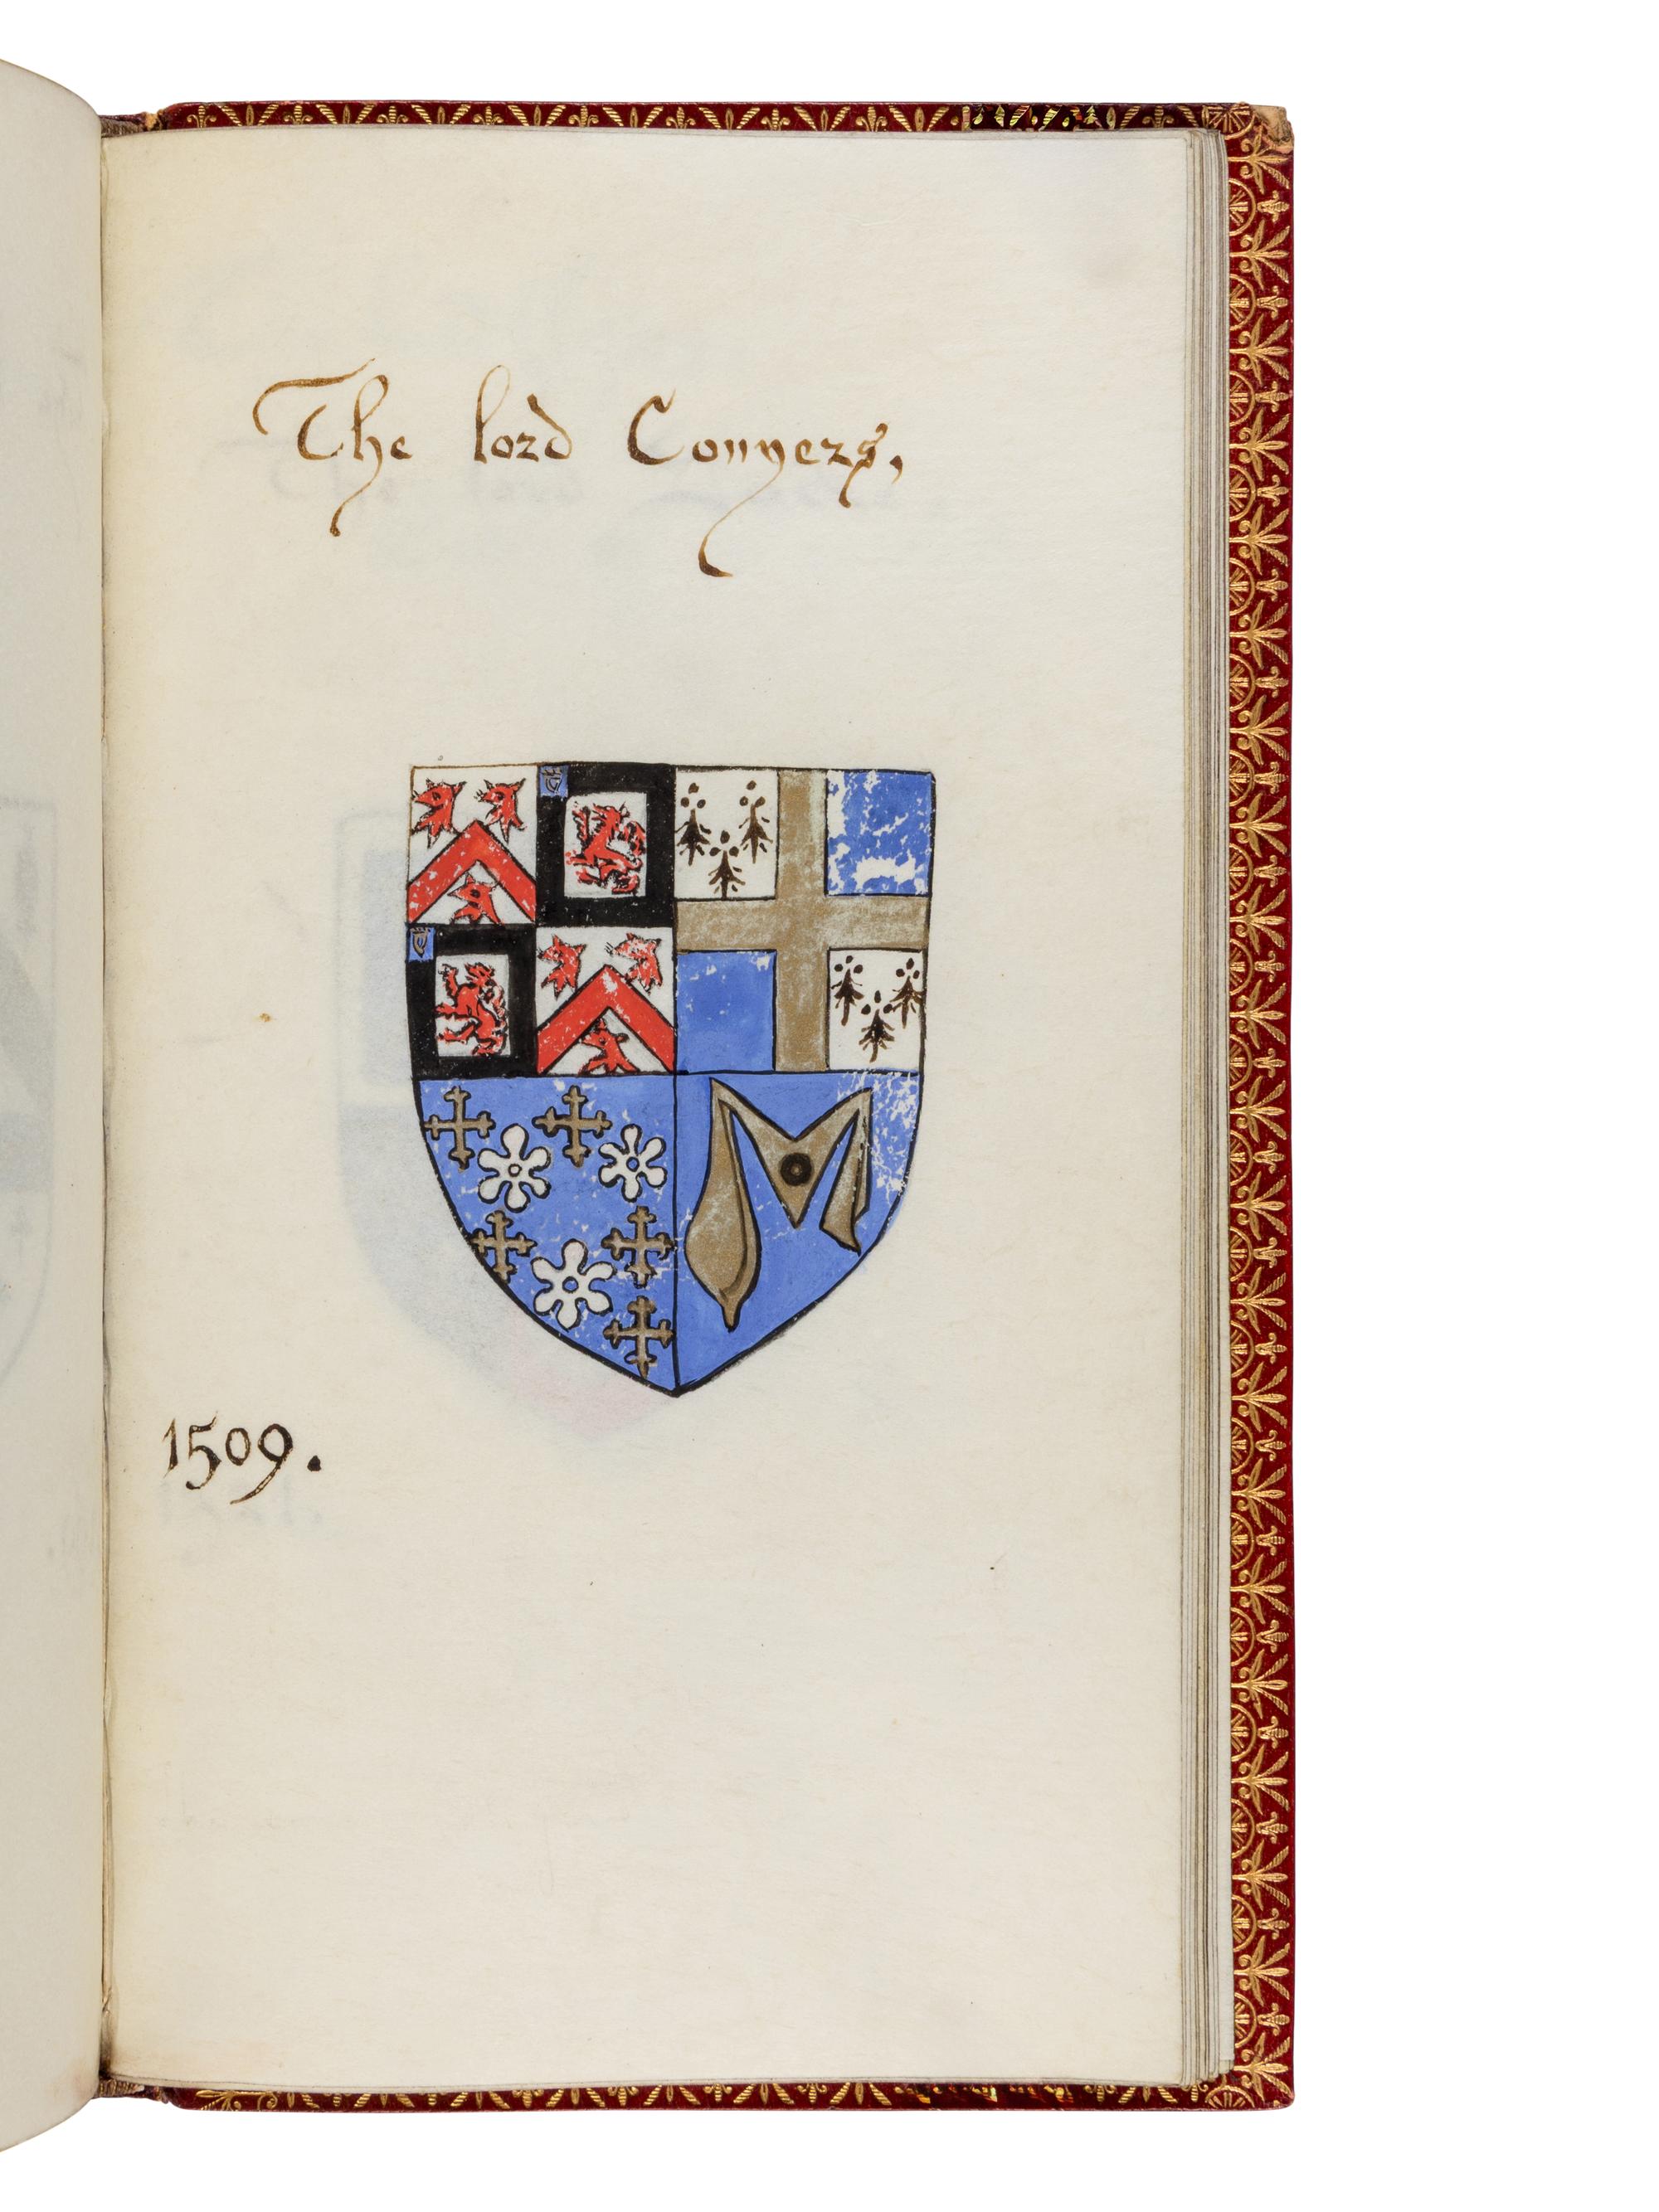 The lord Conyers,
1509.